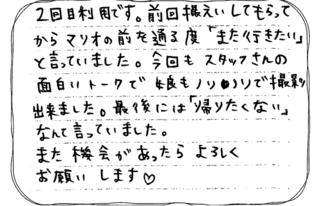 2回目利用です。前回撮えいしてもらって
からマリオの前を通る度「また行きたい」
と言っていました。今回もスタッフさんの
面白いトークで娘もノリノリで撮影
出来ました。最後には「帰りたくない」
なんて言っていました。
また機会があったらよろしく
お願いします♡